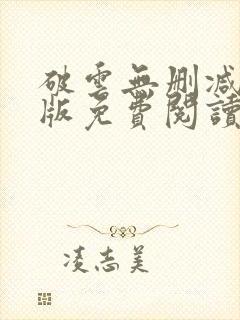 破雲無刪減
版免費閱讀
凌志美